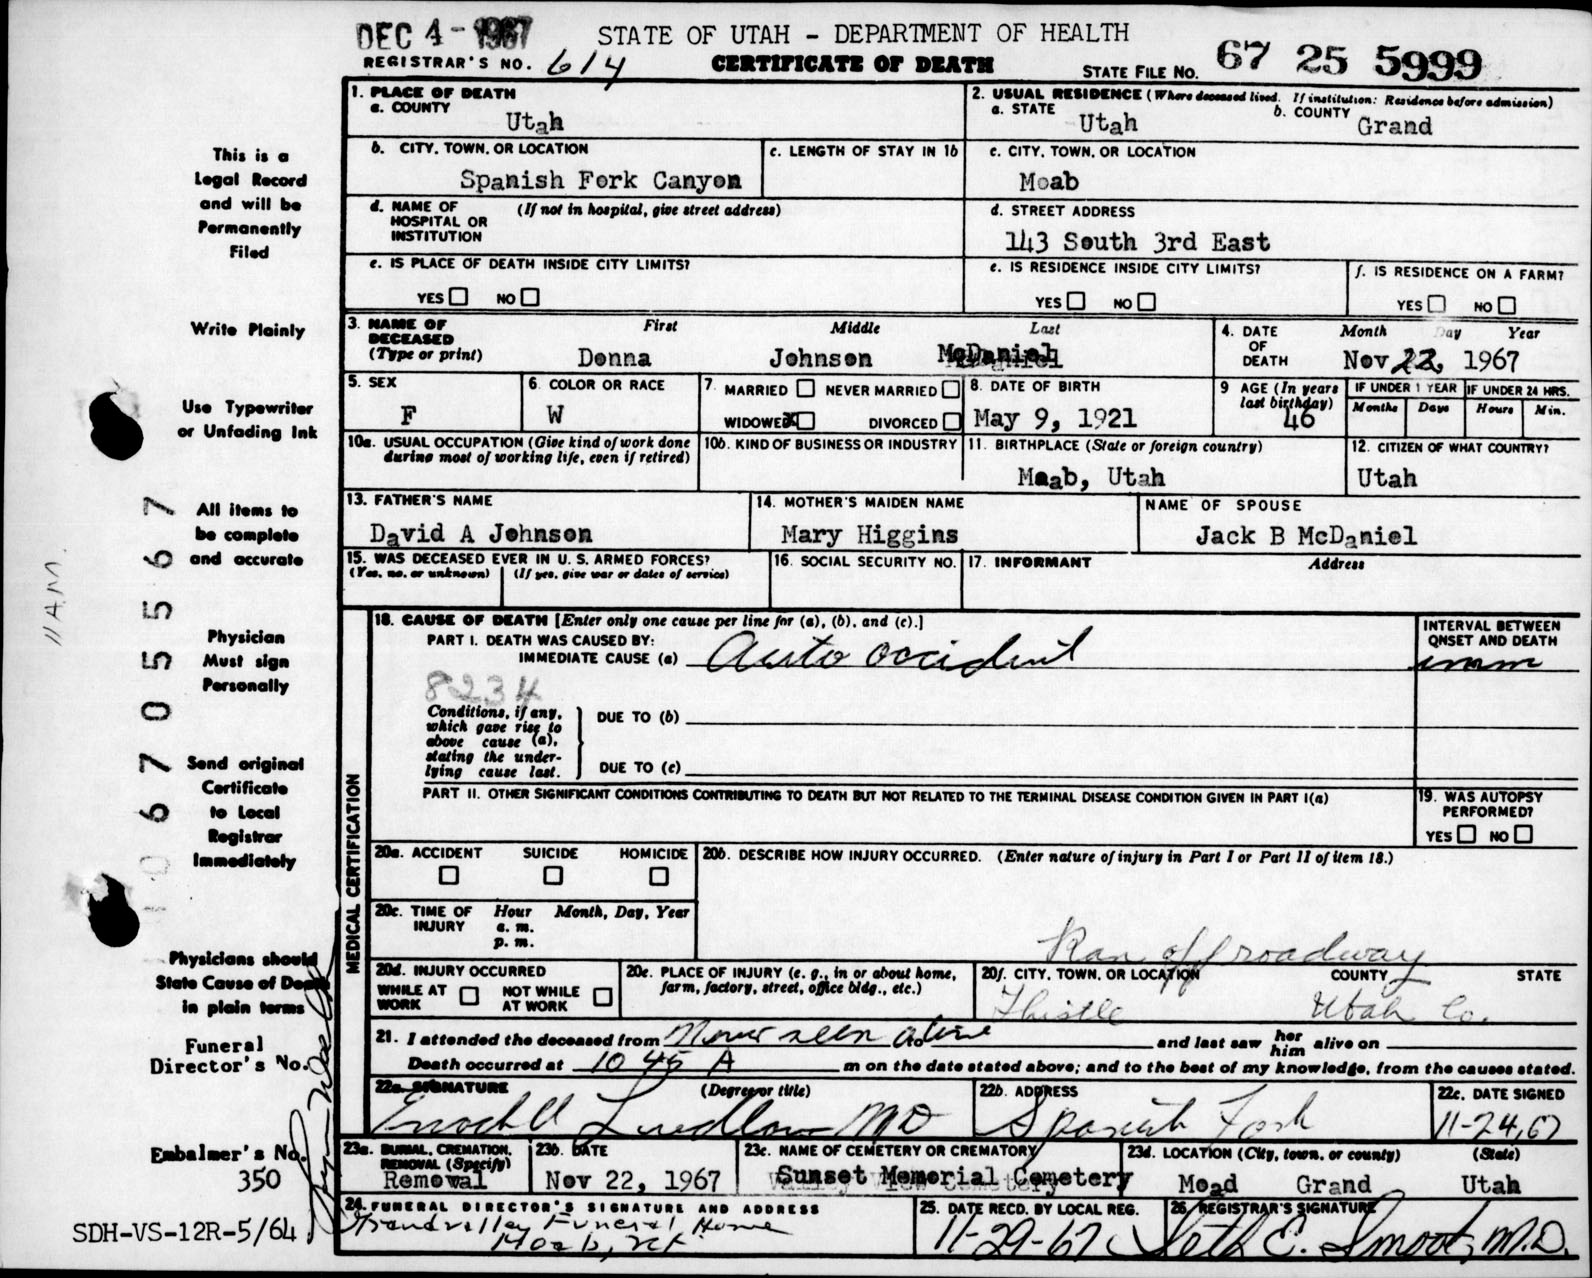 DEC 4 - 1967
STATE OF UTAH - DEPARTMENT OF HEALTH
REGISTRAR'S NO. 614
CERTIFICATE OF DEATH
STATE FILE NO. 67 25 5999
1. PLACE OF DEATH
a. COUNTY
Utah
2. USUAL RESIDENCE (Where deceased lived. If institution: Residence before admission)
a. STATE
Utah
b. COUNTY
Grand
b. CITY, TOWN, OR LOCATION
Spanish Fork Canyon
c. LENGTH OF STAY IN 1b
c. CITY, TOWN, OR LOCATION
Moab
d. NAME OF HOSPITAL OR INSTITUTION
(If not in hospital, give street address)
d. STREET ADDRESS
143 South 3rd East
e. IS PLACE OF DEATH INSIDE CITY LIMITS?
YES NO
e. IS RESIDENCE INSIDE CITY LIMITS?
YES NO
f. IS RESIDENCE ON A FARM?
YES NO
3. NAME OF DECEASED
(Type or print)
First Middle Last
Donna Johnson McDaniel
4. DATE OF DEATH
Month Day Year
Nov 22, 1967
5. SEX
F
6. COLOR OR RACE
W
7. MARRIED NEVER MARRIED
WIDOWED DIVORCED
8. DATE OF BIRTH
May 9, 1921
9 AGE (In years last birthday)
46
IF UNDER 1 YEAR
Months Days
IF UNDER 24 HRS.
Hours Min.
10a. USUAL OCCUPATION (Give kind of work done
during most of working life, even if retired)
10b. KIND OF BUSINESS OR INDUSTRY
11. BIRTHPLACE (State or foreign country)
Maab, Utah
12. CITIZEN OF WHAT COUNTRY?
Utah
13. FATHER'S NAME
David A Johnson
14. MOTHER'S MAIDEN NAME
Mary Higgins
NAME OF SPOUSE
Jack B McDaniel
15. WAS DECEASED EVER IN U. S. ARMED FORCES?
(Yes, no, or unknown) (If yes, give war or dates of service)
16. SOCIAL SECURITY NO.
17. INFORMANT
Address
18. CAUSE OF DEATH [Enter only one cause per line for (a), (b), and (c).]
PART I. DEATH WAS CAUSED BY:
IMMEDIATE CAUSE (a) Auto accident
INTERVAL BETWEEN
ONSET AND DEATH
imm
8234
Conditions, if any,
which gave rise to
above cause (a),
stating the under-
lying cause last.
DUE TO (b)
DUE TO (c)
PART II. OTHER SIGNIFICANT CONDITIONS CONTRIBUTING TO DEATH BUT NOT RELATED TO THE TERMINAL DISEASE CONDITION GIVEN IN PART I(a)
19. WAS AUTOPSY
PERFORMED?
YES NO
MEDICAL CERTIFICATION
20a. ACCIDENT SUICIDE HOMICIDE
20b. DESCRIBE HOW INJURY OCCURRED. (Enter nature of injury in Part I or Part II of item 18.)
Ran off roadway
20c. TIME OF INJURY
Hour Month, Day, Year
a. m.
p. m.
20d. INJURY OCCURRED
WHILE AT WORK NOT WHILE AT WORK
20e. PLACE OF INJURY (e. g., in or about home,
farm, factory, street, office bldg., etc.)
20f. CITY, TOWN, OR LOCATION COUNTY STATE
Thistle Utah Co.
21. I attended the deceased from Never seen alive and last saw her him alive on
Death occurred at 10 45 A m on the date stated above; and to the best of my knowledge, from the causes stated.
22a. SIGNATURE
(Degree or title)
Ludlow MD
22b. ADDRESS
Spanish Fork
22c. DATE SIGNED
11-24,67
23a. BURIAL, CREMATION,
REMOVAL (Specify)
Removal
23b. DATE
Nov 22, 1967
23c. NAME OF CEMETERY OR CREMATORY
Sunset Memorial Cemetery
23d. LOCATION (City, town, or county) (State)
Moad Grand Utah
24. FUNERAL DIRECTOR'S SIGNATURE AND ADDRESS
Grandvalley Funeral Home
Moab, Ut.
25. DATE RECD. BY LOCAL REG.
11-29-67
26. REGISTRAR'S SIGNATURE
Seth E. Smoot, M.D.
This is a
Legal Record
and will be
Permanently
Filed
Write Plainly
Use Typewriter
or Unfading Ink
All items to
be complete
and accurate
Physician
Must sign
Personally
Send original
Certificate
to Local
Registrar
Immediately
Physicians should
State Cause of Death
in plain terms
Funeral
Director's No.
Embalmer's No.
350
SDH-VS-12R-5/64
11 AM.
067055567